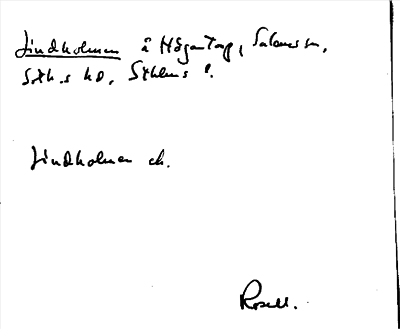 Lindholmen å Högantorp, Salems sn,
Sthlms l.
Lindholmen ch.
Rosell.